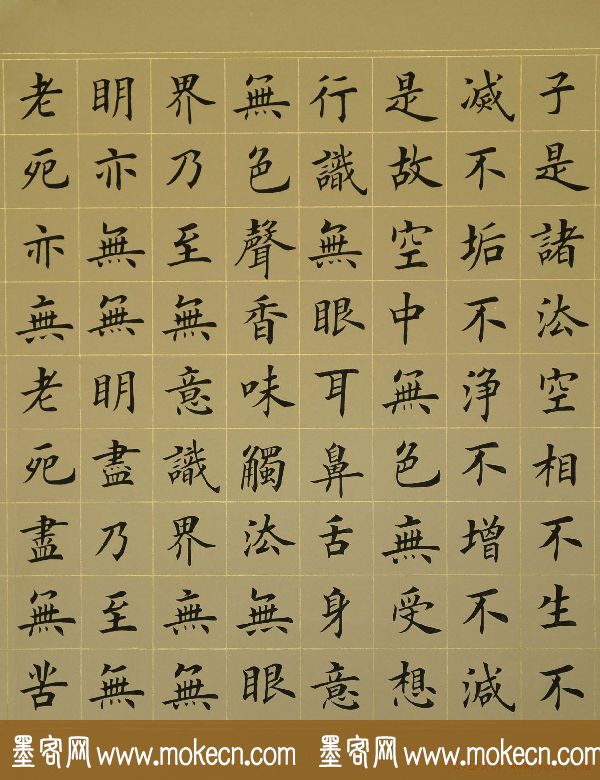 子是諸法空相不生不
滅不垢不淨不增不減
是故空中無色無受想
行識無眼耳鼻舌身意
無色聲香味觸法無眼
界乃至無意識界無無
明亦無無明盡乃至無
老死亦無老死盡無苦
墨客网 www.mokecn.com 墨客网 www.mokecn.com